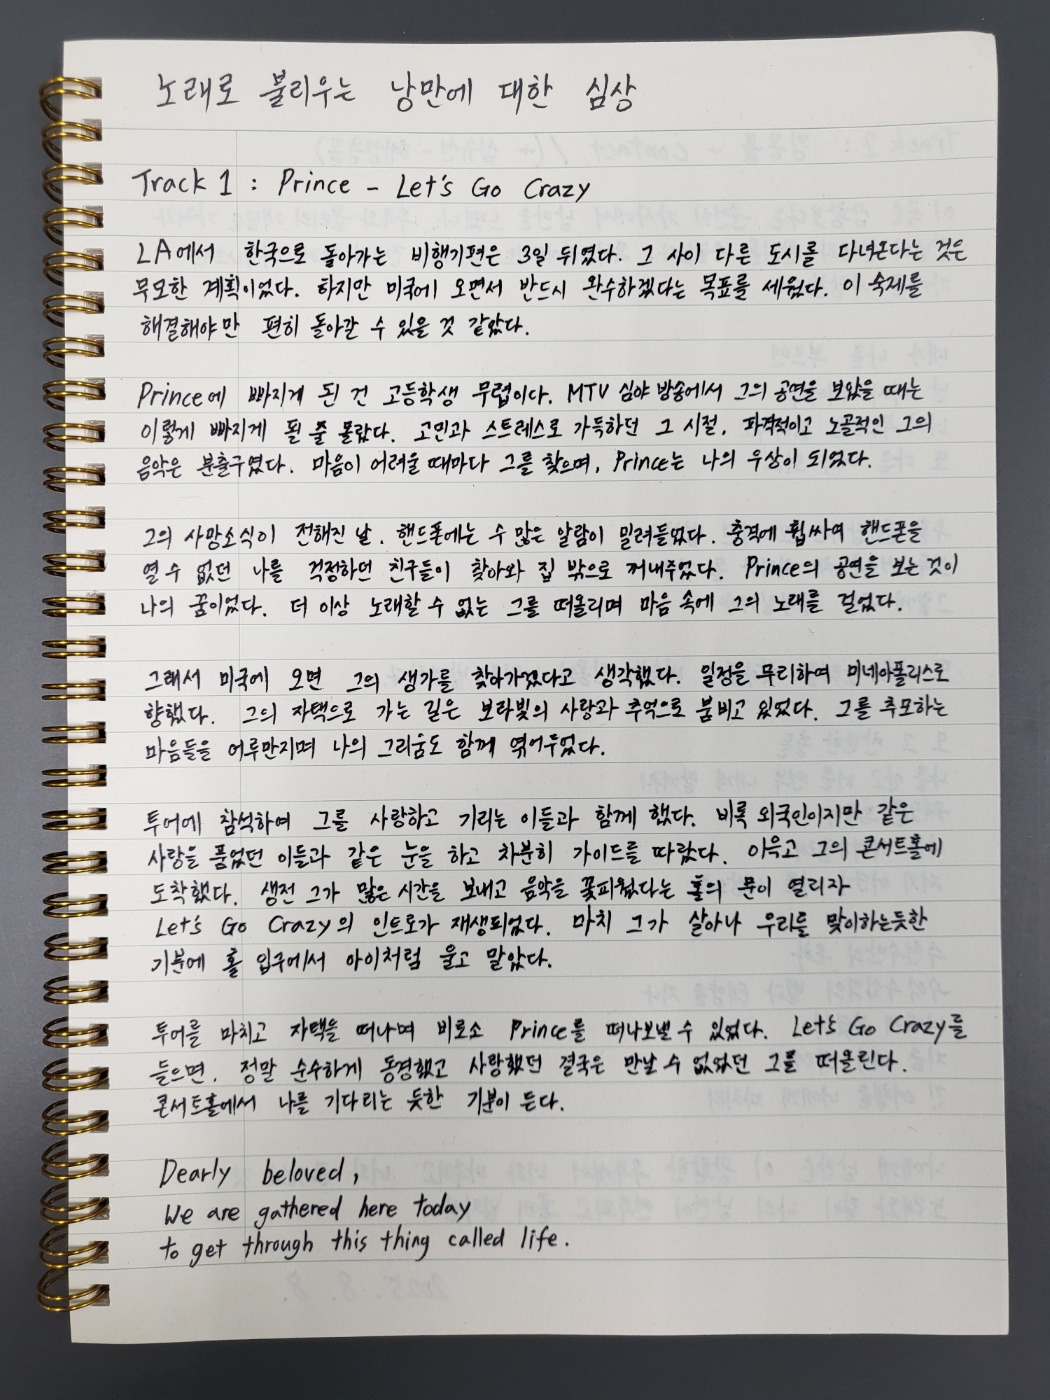 노래로 불리우는 낭만에 대한 심상
Track 1 : Prince - Let's Go Crazy
LA에서 한국으로 돌아가는 비행기편은 3일 뒤였다. 그 사이 다른 도시를 다녀온다는 것은
무모한 계획이었다. 하지만 미국에 오면서 반드시 완수하겠다는 목표를 세웠다. 이 숙제를
해결해야만 편히 돌아갈 수 있을 것 같았다.
Prince에 빠지게 된 건 고등학생 무렵이다. MTV 심야 방송에서 그의 공연을 보았을 때는
이렇게 빠지게 될 줄 몰랐다. 고민과 스트레스로 가득하던 그 시절, 파격적이고 노골적인 그의
음악은 분출구였다. 마음이 어려울 때마다 그를 찾으며, Prince는 나의 우상이 되었다.
그의 사망소식이 전해진 날, 핸드폰에는 수 많은 알람이 밀려들었다. 충격에 휩싸여 핸드폰을
열 수 없던 나를 걱정하던 친구들이 찾아와 집 밖으로 꺼내주었다. Prince의 공연을 보는 것이
나의 꿈이었다. 더 이상 노래할 수 없는 그를 떠올리며 마음 속에 그의 노래를 걸었다.
그래서 미국에 오면 그의 생가를 찾아가겠다고 생각했다. 일정을 무리하여 미네아폴리스로
향했다. 그의 자택으로 가는 길은 보라빛의 사랑과 추억으로 붐비고 있었다. 그를 추모하는
마음들을 어루만지며 나의 그리움도 함께 엮어두었다.
투어에 참석하여 그를 사랑하고 기리는 이들과 함께 했다. 비록 외국인이지만 같은
사랑을 품었던 이들과 같은 눈을 하고 차분히 가이드를 따랐다. 이윽고 그의 콘서트홀에
도착했다. 생전 그가 많은 시간을 보내고 음악을 꽃피웠다는 홀의 문이 열리자
Let's Go Crazy의 인트로가 재생되었다. 마치 그가 살아나 우리를 맞이하는듯한
기분에 홀 입구에서 아이처럼 울고 말았다.
투어를 마치고 자택을 떠나며 비로소 Prince를 떠나보낼 수 있었다. Let's Go Crazy를
들으면, 정말 순수하게 동경했고 사랑했던 결국은 만날 수 없었던 그를 떠올린다.
콘서트홀에서 나를 기다리는 듯한 기분이 든다.
Dearly beloved,
We are gathered here today
to get through this thing called life.